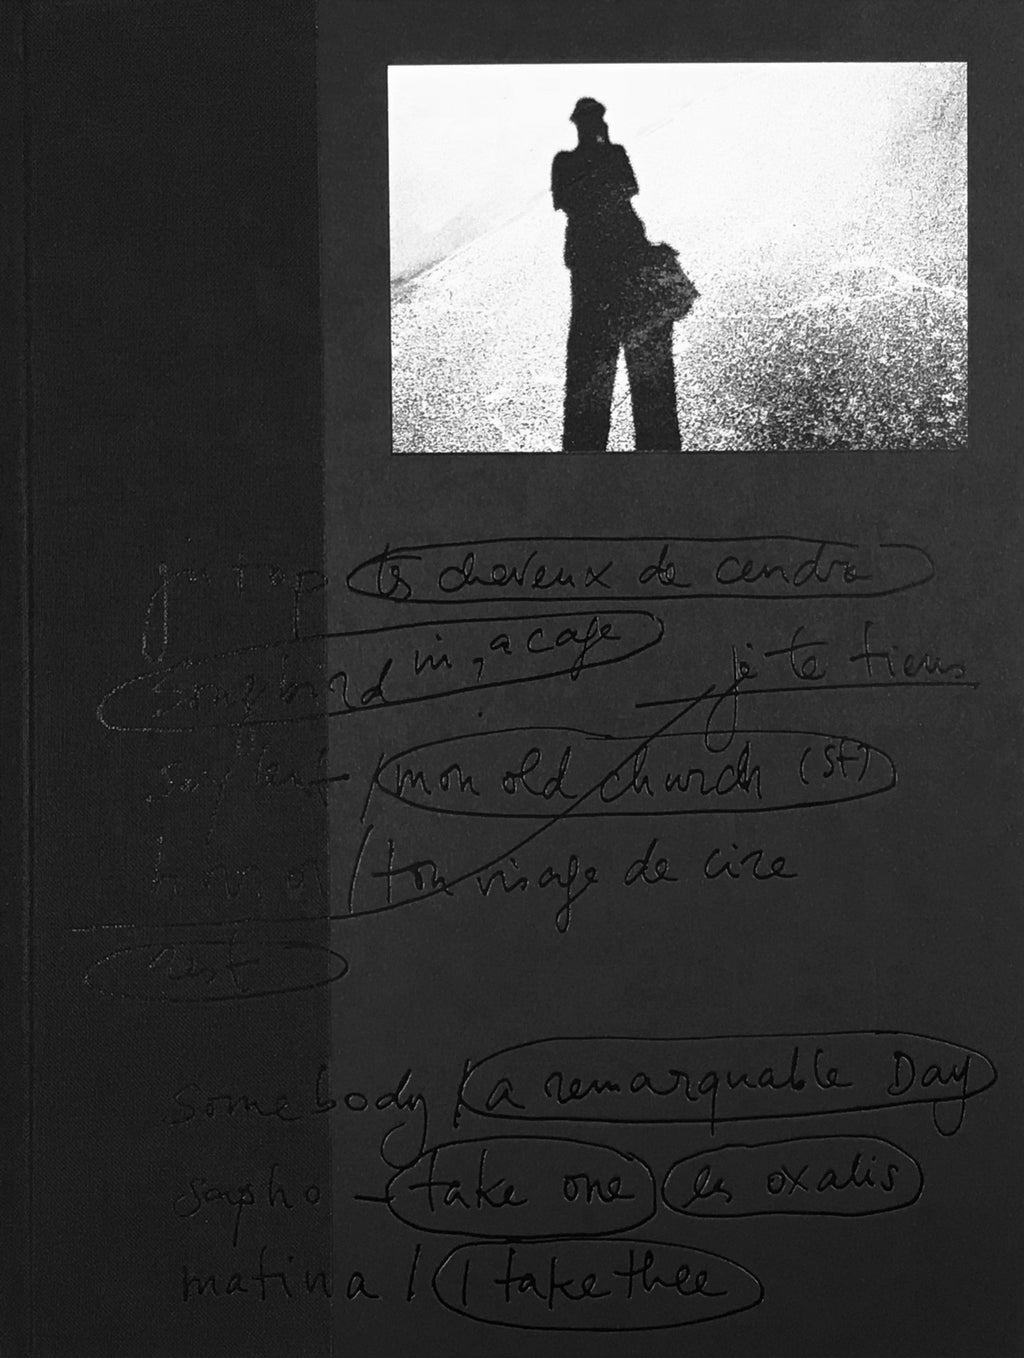 tes cheveux de cendre
songbird in, a cage
je te tiens
mon old church (st)
ton visage de cire
somebody / a remarquable Day
sapho - take one les oxalis
matina / I take thee